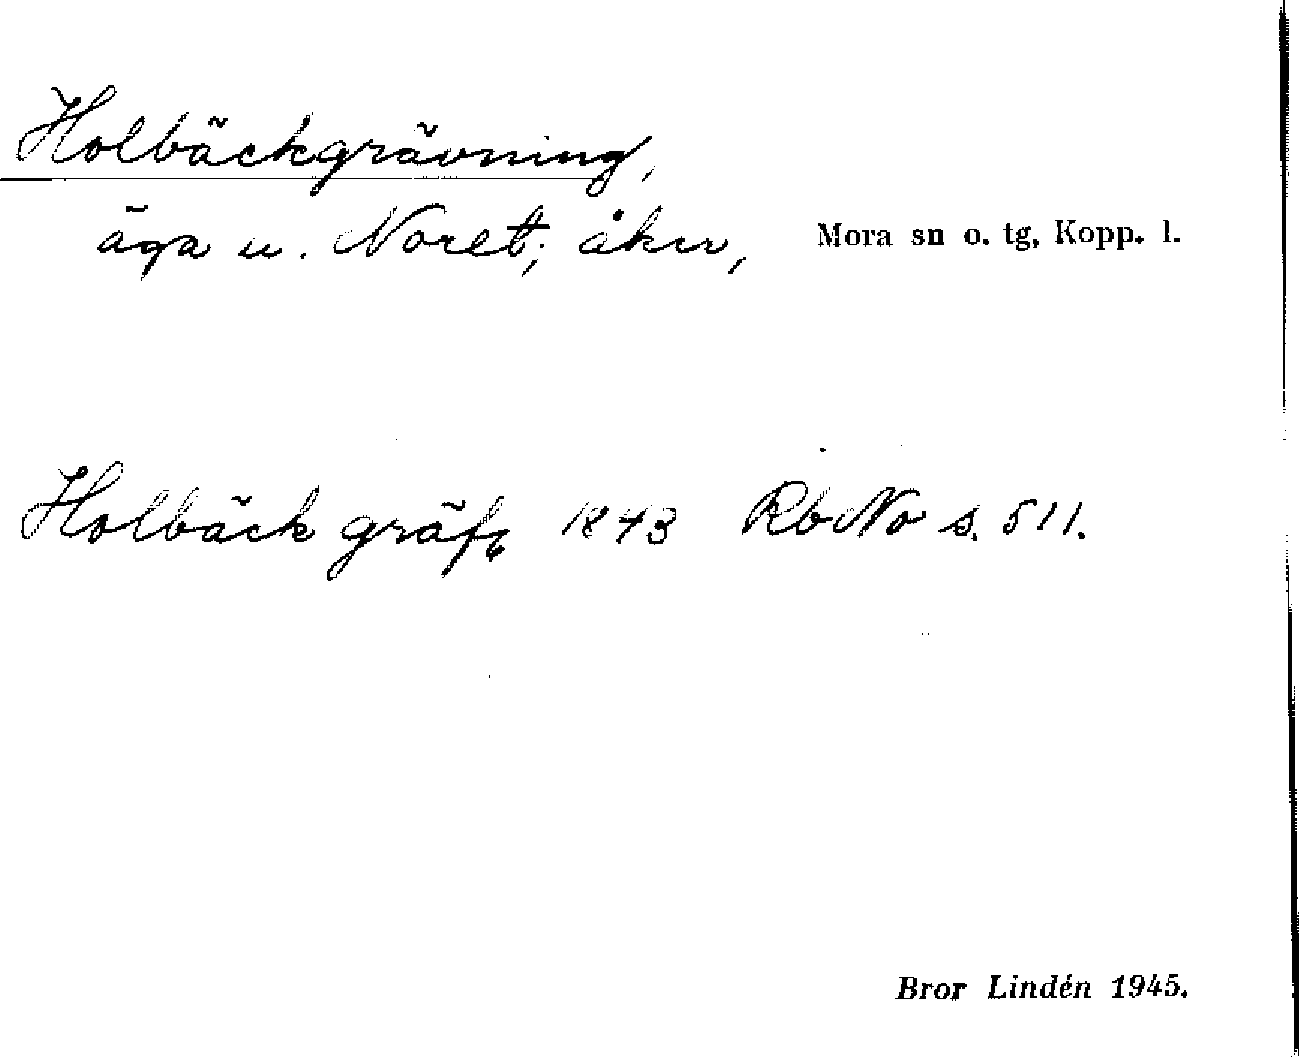 Holbäckgrävning,
äga u. Noret; åker, Mora sn o. tg, Kopp. l.
Holbäck gräf. 1843 RbNo s. 511.
Bror Lindén 1945.